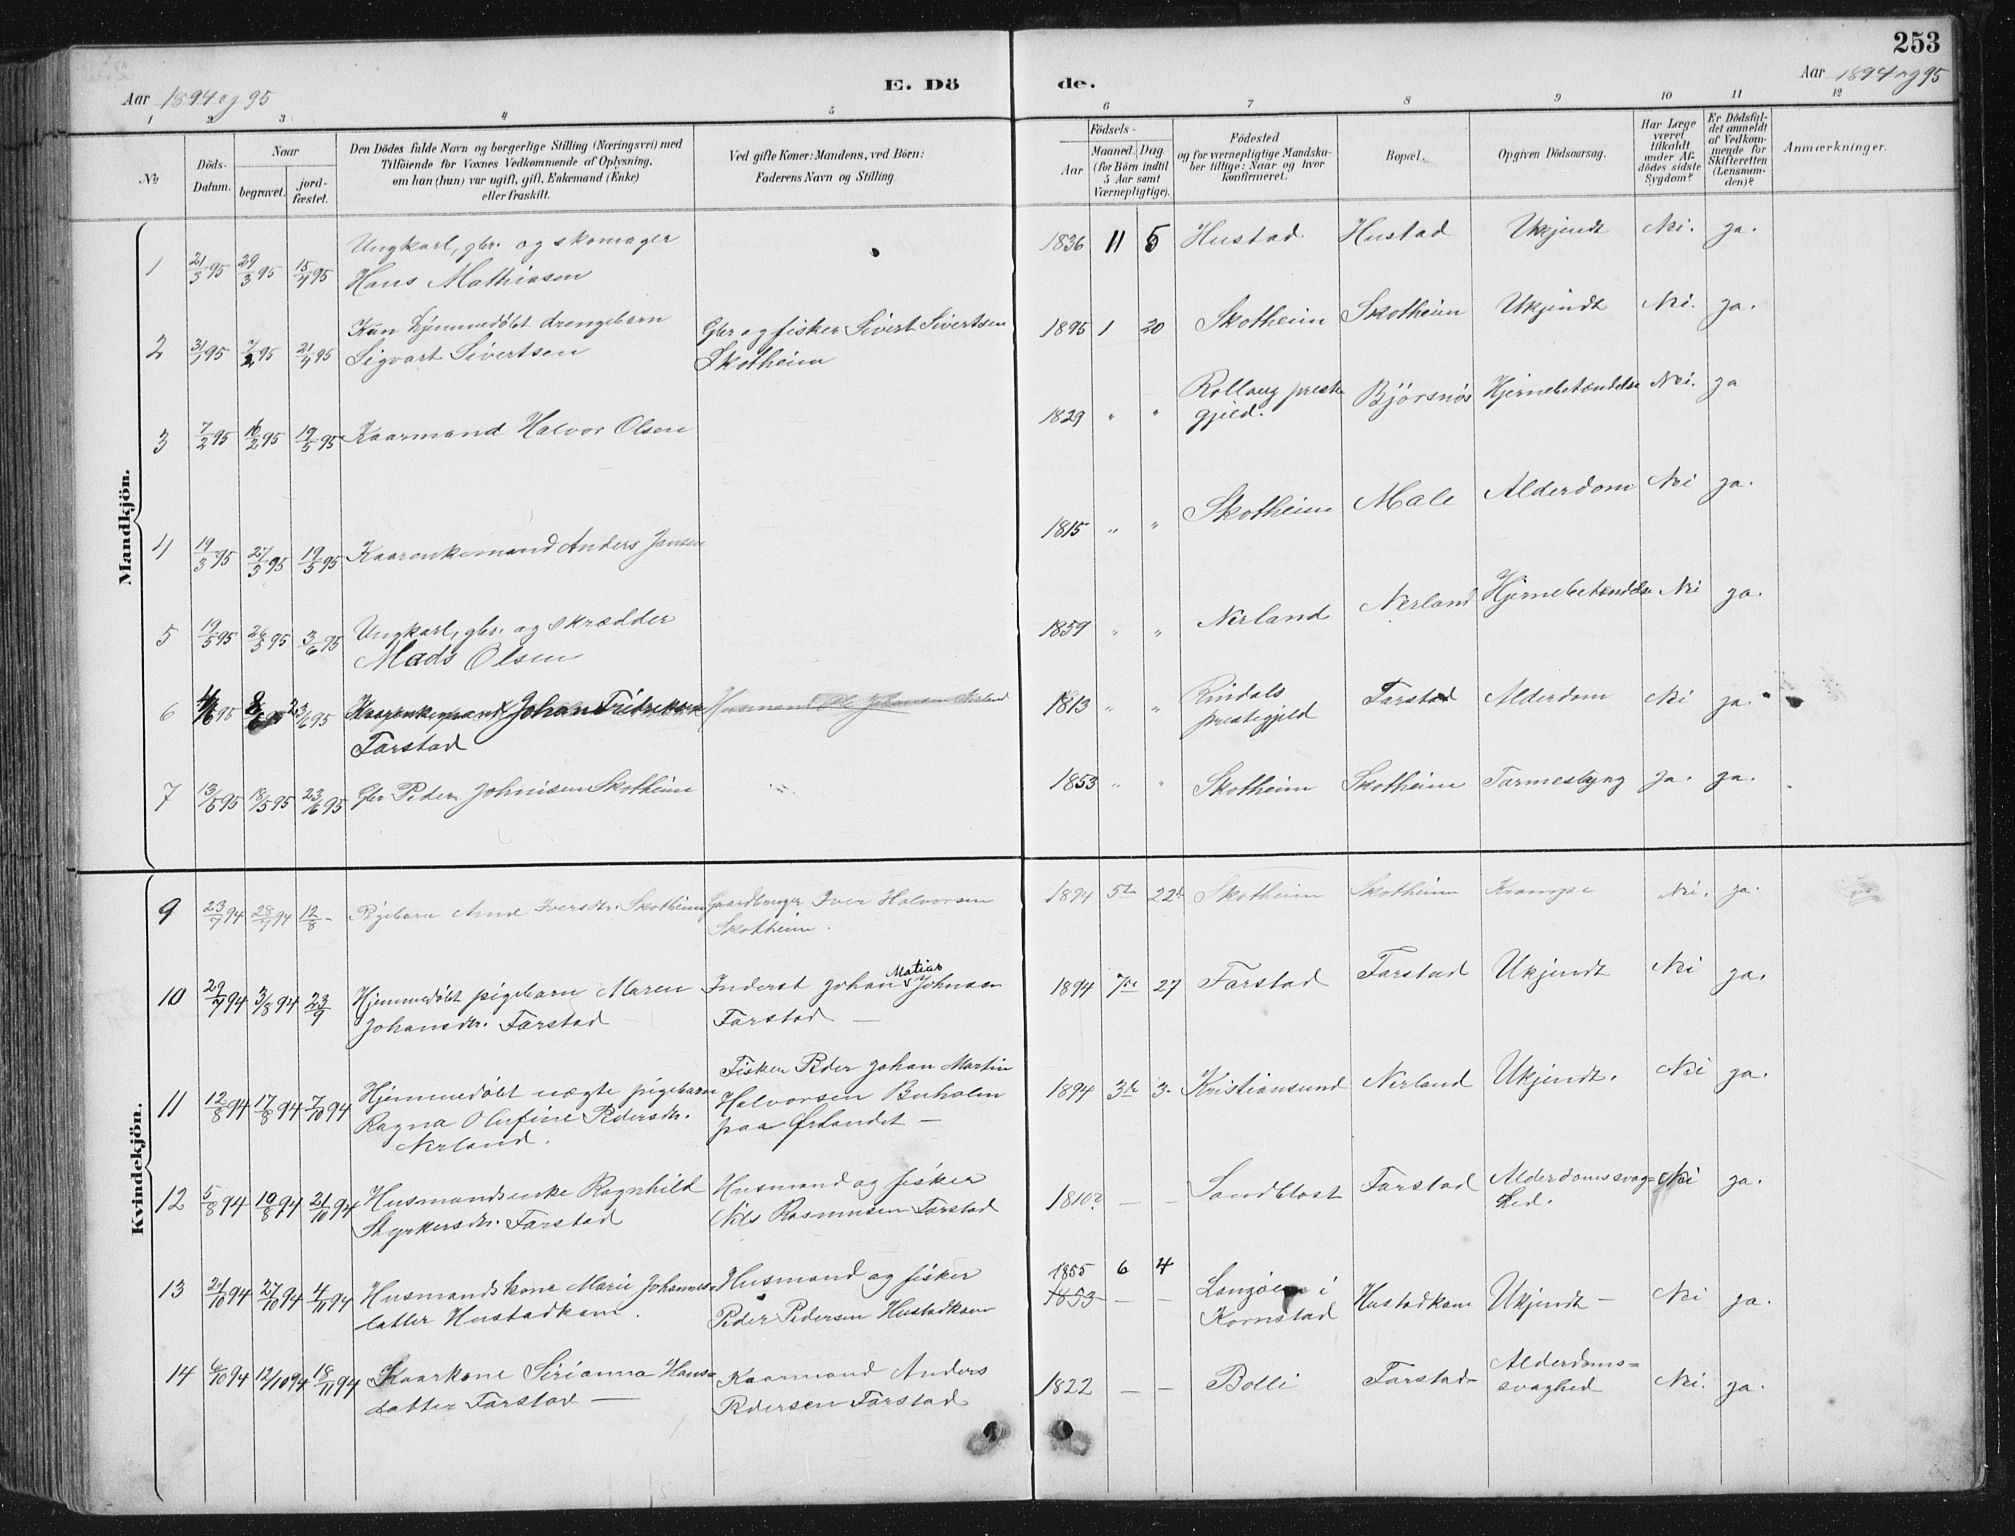 253
Aar 1894 og 95
E. Dö
de.
Aar 1894 og 95
1 2 3 4 5 6 7 8 9 10 11 12
No
Döds-
Datum.
Naar
begravet.
jord-
fæstet.
Den Dödes fulde Navn og borgerlige Stilling (Næringsvei) med
Tilföiende for Voxnes Vedkommende af Oplysning,
om han (hun) var ugift, gift, Enkemand (Enke)
eller fraskilt.
Ved gifte Koner: Mandens, ved Börn:
Faderens Navn og Stilling.
Födsels-
Aar
Maaned. Dag.
(for Börn indtil
5 Aar samt
Værnepligtige).
Födested
og for værnepligtige Mandska-
ber tillige: Naar og hvor
konfirmeret.
Bopæl.
Opgiven Dödsaarsag.
Har Læge
været
tilkaldt
under Af-
dödes sidste
Sygdom?
Er Dödsfal-
det anmeldt
af Vedkom-
mende for
Skifteretten
(Lensman-
den)?
Anmærkninger.
Mandkjön.
Ungkarl, gbr. og skomager
1 21/3 95 29/3 95 15/4 95 Hans Mathiasen 1836 11 5 Hustad Hustad Ukjendt Nei. ja.
Kun hjemmedöbt drengebarn Gbr og fisker Sivert Sivertsen
2 31/1 95 7/2 95 21/4 95 Sigvart Sivertsen Skotheim 1895 1 20 Skotheim Skotheim Ukjendt Nei. ja.
3 7/2 95 16/2 95 19/5 95 Kaarmand Halvor Olsen 1829 " " preste- Björsnös Hjernebetændelse Nei. ja
gjeld.
4 19/3 95 27/3 95 19/5 95 Kaarenkemand Anders Jansen 1815 " " Skotheim Male Alderdom Nei ja.
Ungkarl, gbr. og skrædder
5 19/5 95 26/5 95 3/6 95 Mads Olsen 1859 " " Nerland Nerland Hjernebetændelse Nei ja.
6 4/6 95 8/6 95 23/6 95 Kaarenkemand Johan Fredriksen Husmand Johansen Nerland 1813 " " Rindals Farstad Alderdom Nei ja.
Farstad prestegjeld
7 13/5 95 18/5 95 23/6 95 Gbr Peder Johnisen Skotheim 1853 " " Skotheim Skotheim Tarmeslyng ja. ja.
Kvindekjön.
9 23/7 94 28/7 94 12/8 - Pigebarn Ane Iversdtr. Skotheim Gaardbruger Iver Halvorsen 1894 5te 22de Skotheim Skotheim Krampe Nei. ja.
Skotheim.
10 29/7 94 3/8 94 23/9 Hjemmedöbt pigebarn Maren Inderst Johan Matias Johnsen 1894 7de 27 Farstad Farstad Ukjendt Nei ja.
Johansdtr. Farstad Farstad —
11 12/8 94 17/8 94 7/10 94 Hjemmedöbt uægte pigebarn Fisker Peder Johan Martin 1894 3de 3- Kristiansund Nerland Ukjendt. Nei ja.
Ragna Olufine Pedersdtr. Halvorsen Buholm
Nerland. paa Örlandet —
12 5/8 94 10/8 94 21/10 94 Husmandsenke Ragnhild Husmand og fisker 1810? — — Sandblost Farstad Alderdomssvag- Nei ja.
Styrkersdtr. Farstad Nils Rasmussen Farstad hed.
1855 6 4
13 21/10 94 27/10 94 4/11 94 Husmandskone Marie Johannes- Husmand og fisker 1853 — — Langöen i Hustadkam Ukjendt — Nei ja.
datter Hustadkam. Peder Pedersen Hustadkam Kornstad
14 6/10 94 12/10 94 18/11 94 Kaarkone Sirianna Hans= Kaarmand Anders 1822 — — Bolli Farstad- Alderdoms= Nei. ja.
datter Farstad — Pedersen Farstad svaghed